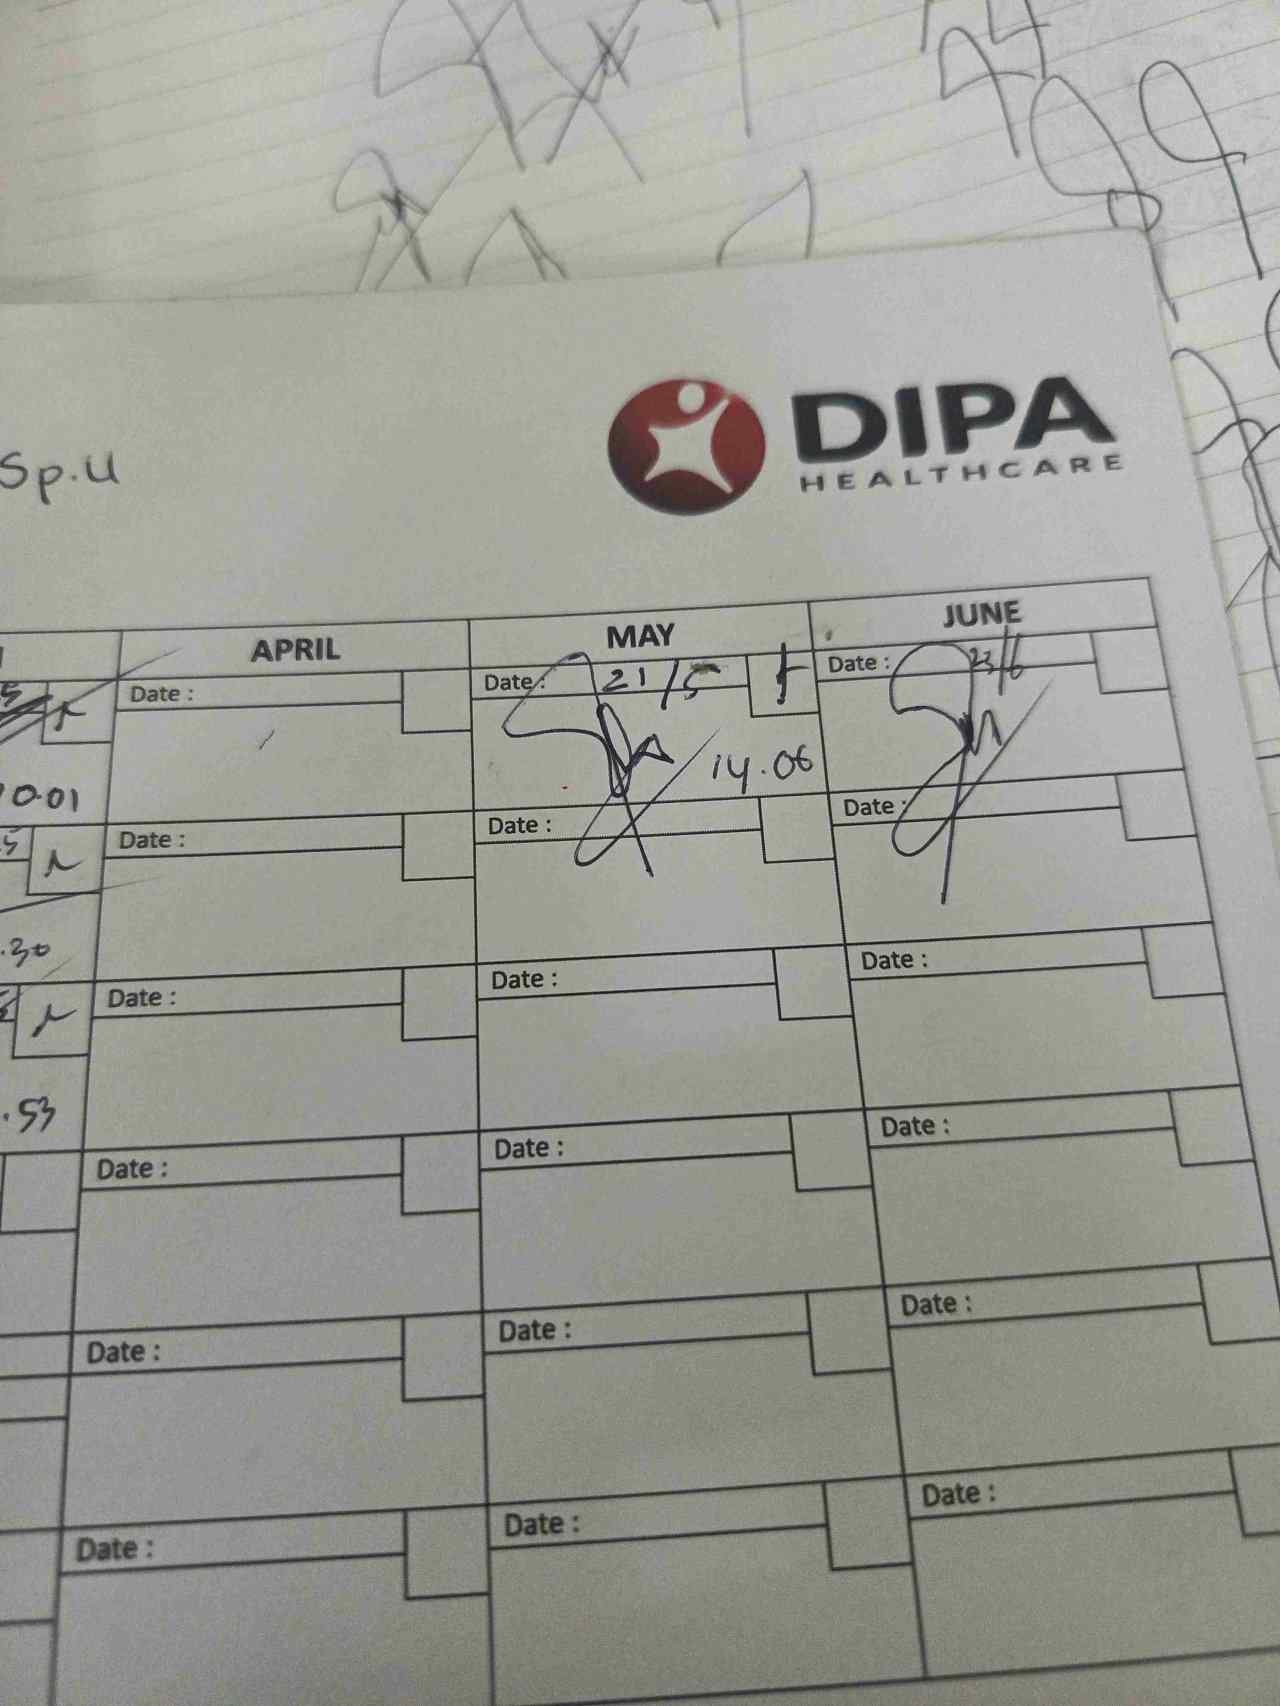 DIPA
HEALTHCARE
Sp.U
APRIL MAY JUNE
Date : Date : 21/5 Date : 23/6
14.06
0.01
Date : Date : Date :
.30
Date : Date : Date :
.53
Date : Date : Date :
Date : Date : Date :
Date : Date : Date :